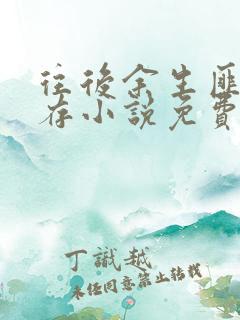 往後余生匪
存小說免費
丁識越
未经同意禁止转载